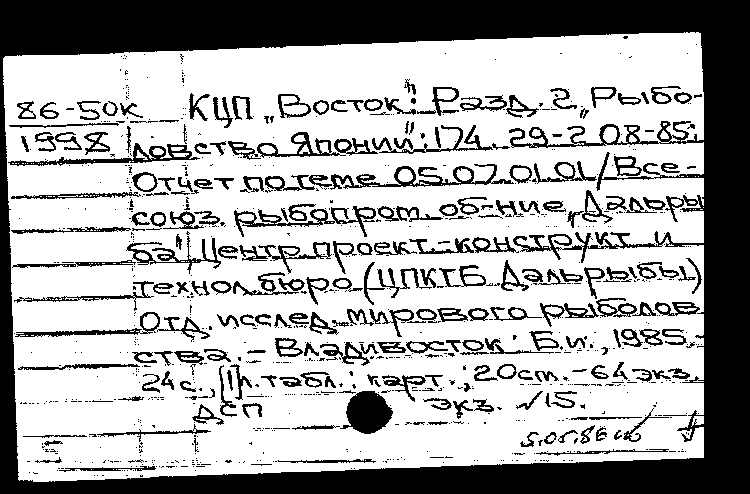 86-50к КЦП „Восток": Разд. 2 „Рыбо-
1998 ловство Японии": 174. 29-2.08-85:
Отчет по теме 05.07.01.01/Все-
союз. рыбопром. об-ние „Дальры
ба" Центр. проект.-конструкт и
технол. бюро (ЦПКТБ Дальрыбы)
Отд. исслед. мирового рыболов
ства. - Владивосток: Б.и., 1985.-
24с., [1]л. табл.: карт.; 20см. - 64 экз.
ДСП экз. √15.
5.05.86